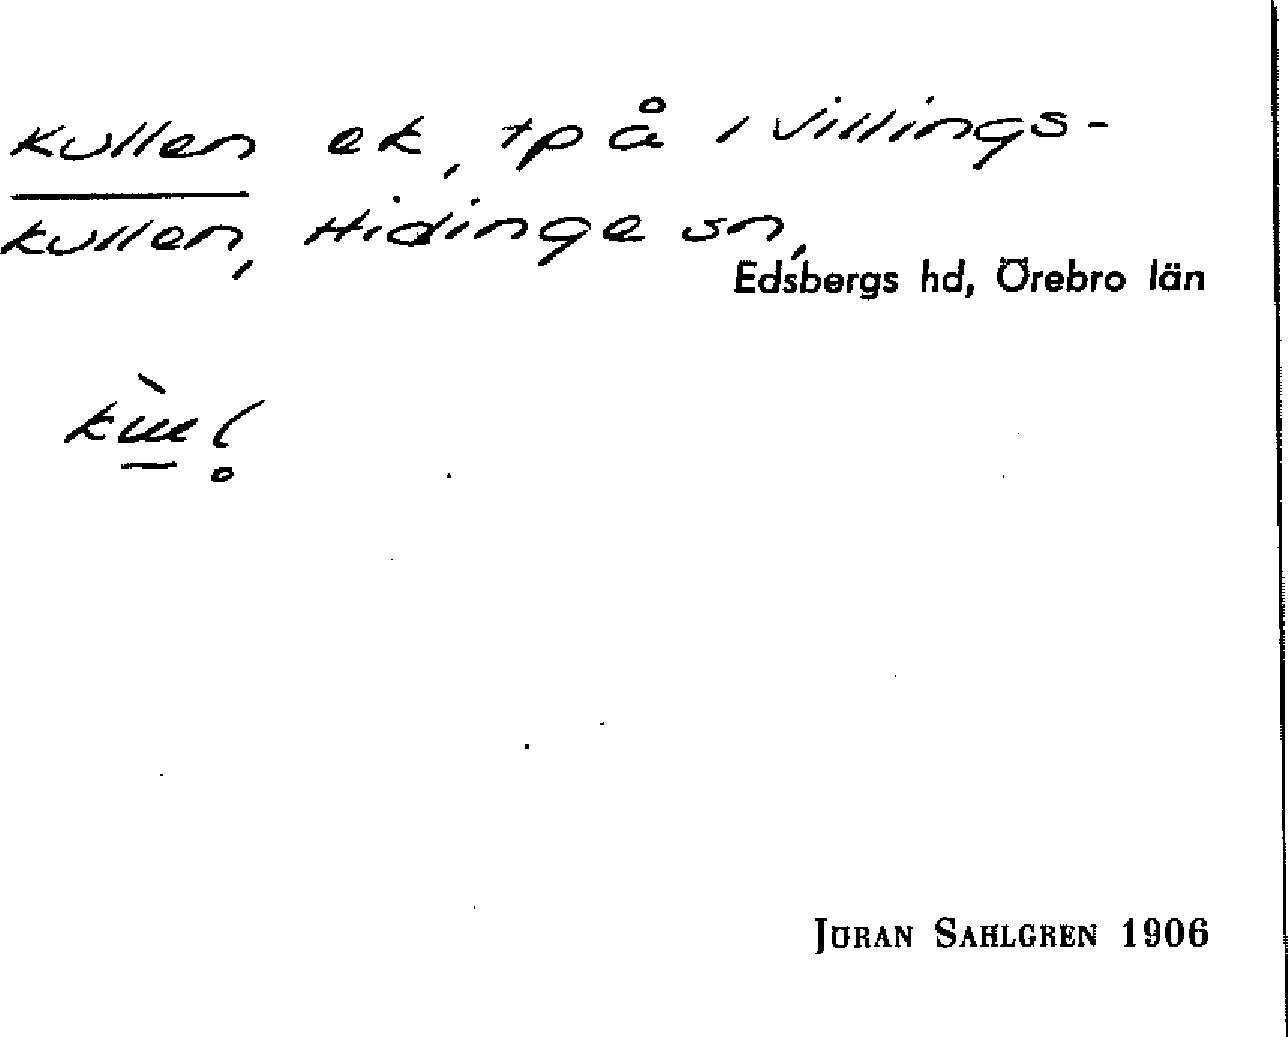 Kullen ek, tp å i Villings-
kullen, Hidinge sn,
Edsbergs hd, Örebro län
JÖRAN SAHLGREN 1906